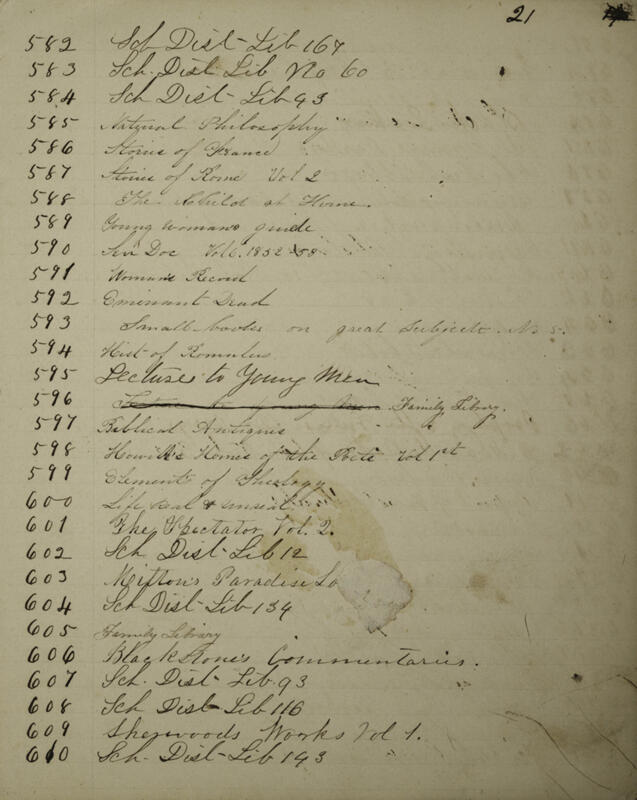 21
582 Sch Dist Lib 167
583 Sch. Dist Lib No 60
584 Sch Dist Lib 93
585 Natural Philosophy
586 Stories of France
587 Stories of Rome Vol 2
588 The at Home.
589 Young Woman's guide
590 Doc Vol 6. 1852
591 Woman's Record
592 Eminant Dead
593 Small books on great Subjects. No 5.
594 Hist of Romulus
595 Lecture to Young Men
596 Family Library.
597 Biblical Antiquis
598 Howitt's Homes of the Poets Vol 1st
599 Element of Theology
600 Life real & unreal
601 The Spectator Vol. 2.
602 Sch Dist Lib 12
603 Milton's Paradise Lo
604 Sch Dist Lib 134
605 Family Library
606 Blackstone's Commentaries.
607 Sch. Dist Lib. 93
608 Sch Dist Lib 116
609 Sherwoods Works Vol 1.
610 Sch. Dist Lib 143